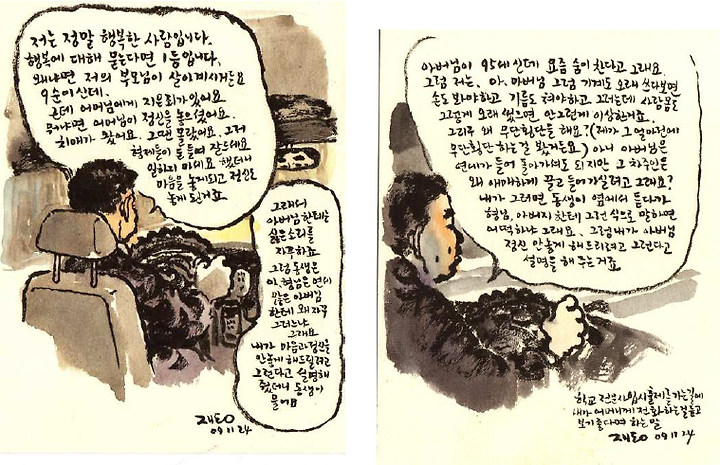 저는 정말 행복한 사람입니다.
행복에 대해 묻는다면 1등입니다.
왜냐면 저의 부모님이 살아계시거든요
9순이신데.
근데 어머님에게 지은죄가 있어요
뭐냐면 어머님이 정신을 놓으셨어요.
치매가 왔어요. 그땐 몰랐어요. 그저
형제들이 돈 들여 잘 드세요
일하지 마세요 했더니
마음을 놓게되고 정신도
놓게 된거죠
그래서
아버님한테는
싫은소리를
자주하죠
그럼 동생은
아, 형님은 연세
많은 아버님
한테 왜 자꾸
그러느냐
그래요
내가 마음과 정신을
안놓게 해드릴려고
그런다고 설명해
줬더니 동생이
울어요
재동
09 11 24
아버님이 92세신데 요즘 숨이 찬다고 그래요.
그럼 저는, 아, 아버님 그럼 기계도 오래 쓰다보면
손도 봐야하고 기름도 쳐야하고 그러는데 사람몸도
그렇게 오래 썼으면 안그런게 이상한거죠.
그리구 왜 무단횡단을 해요?(제가 그 얼마전에
무단횡단 하는걸 봤거든요) 아니 아버님은
연세가 들어 돌아가셔도 되지만 그 차주인은
왜 애매하게 끌고 들어가실려고 그래요?
내가 그러면 동생이 옆에서 듣다가
형님, 아버지한테 그런 식으로 말하면
어떡하냐 그래요. 그럼 내가 아버님
정신 안놓게 해드리려고 그런다고
설명을 해주는거죠
학교 전문사 입시출제를 가는길에
내가 어머니께 전화하는걸 듣고
보기 좋다며 하는 말
재동 09 11 24